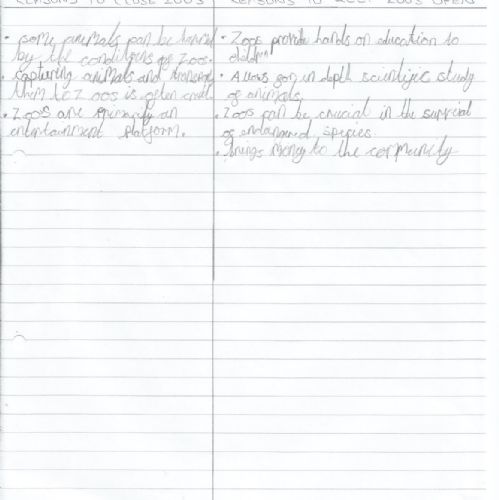 REASONS TO CLOSE ZOOS
• Some animals can be harmed
by the conditions of zoos.
• Capturing animals and
them to zoos is often cruel.
• Zoos are primarily an
entertainment platform.
REASONS TO KEEP ZOOS OPEN
• Zoos provide hands on education to
children
• Allows for in depth scientific study
of animals.
• Zoos can be crucial in the survival
of endangered species
• Brings money to the community